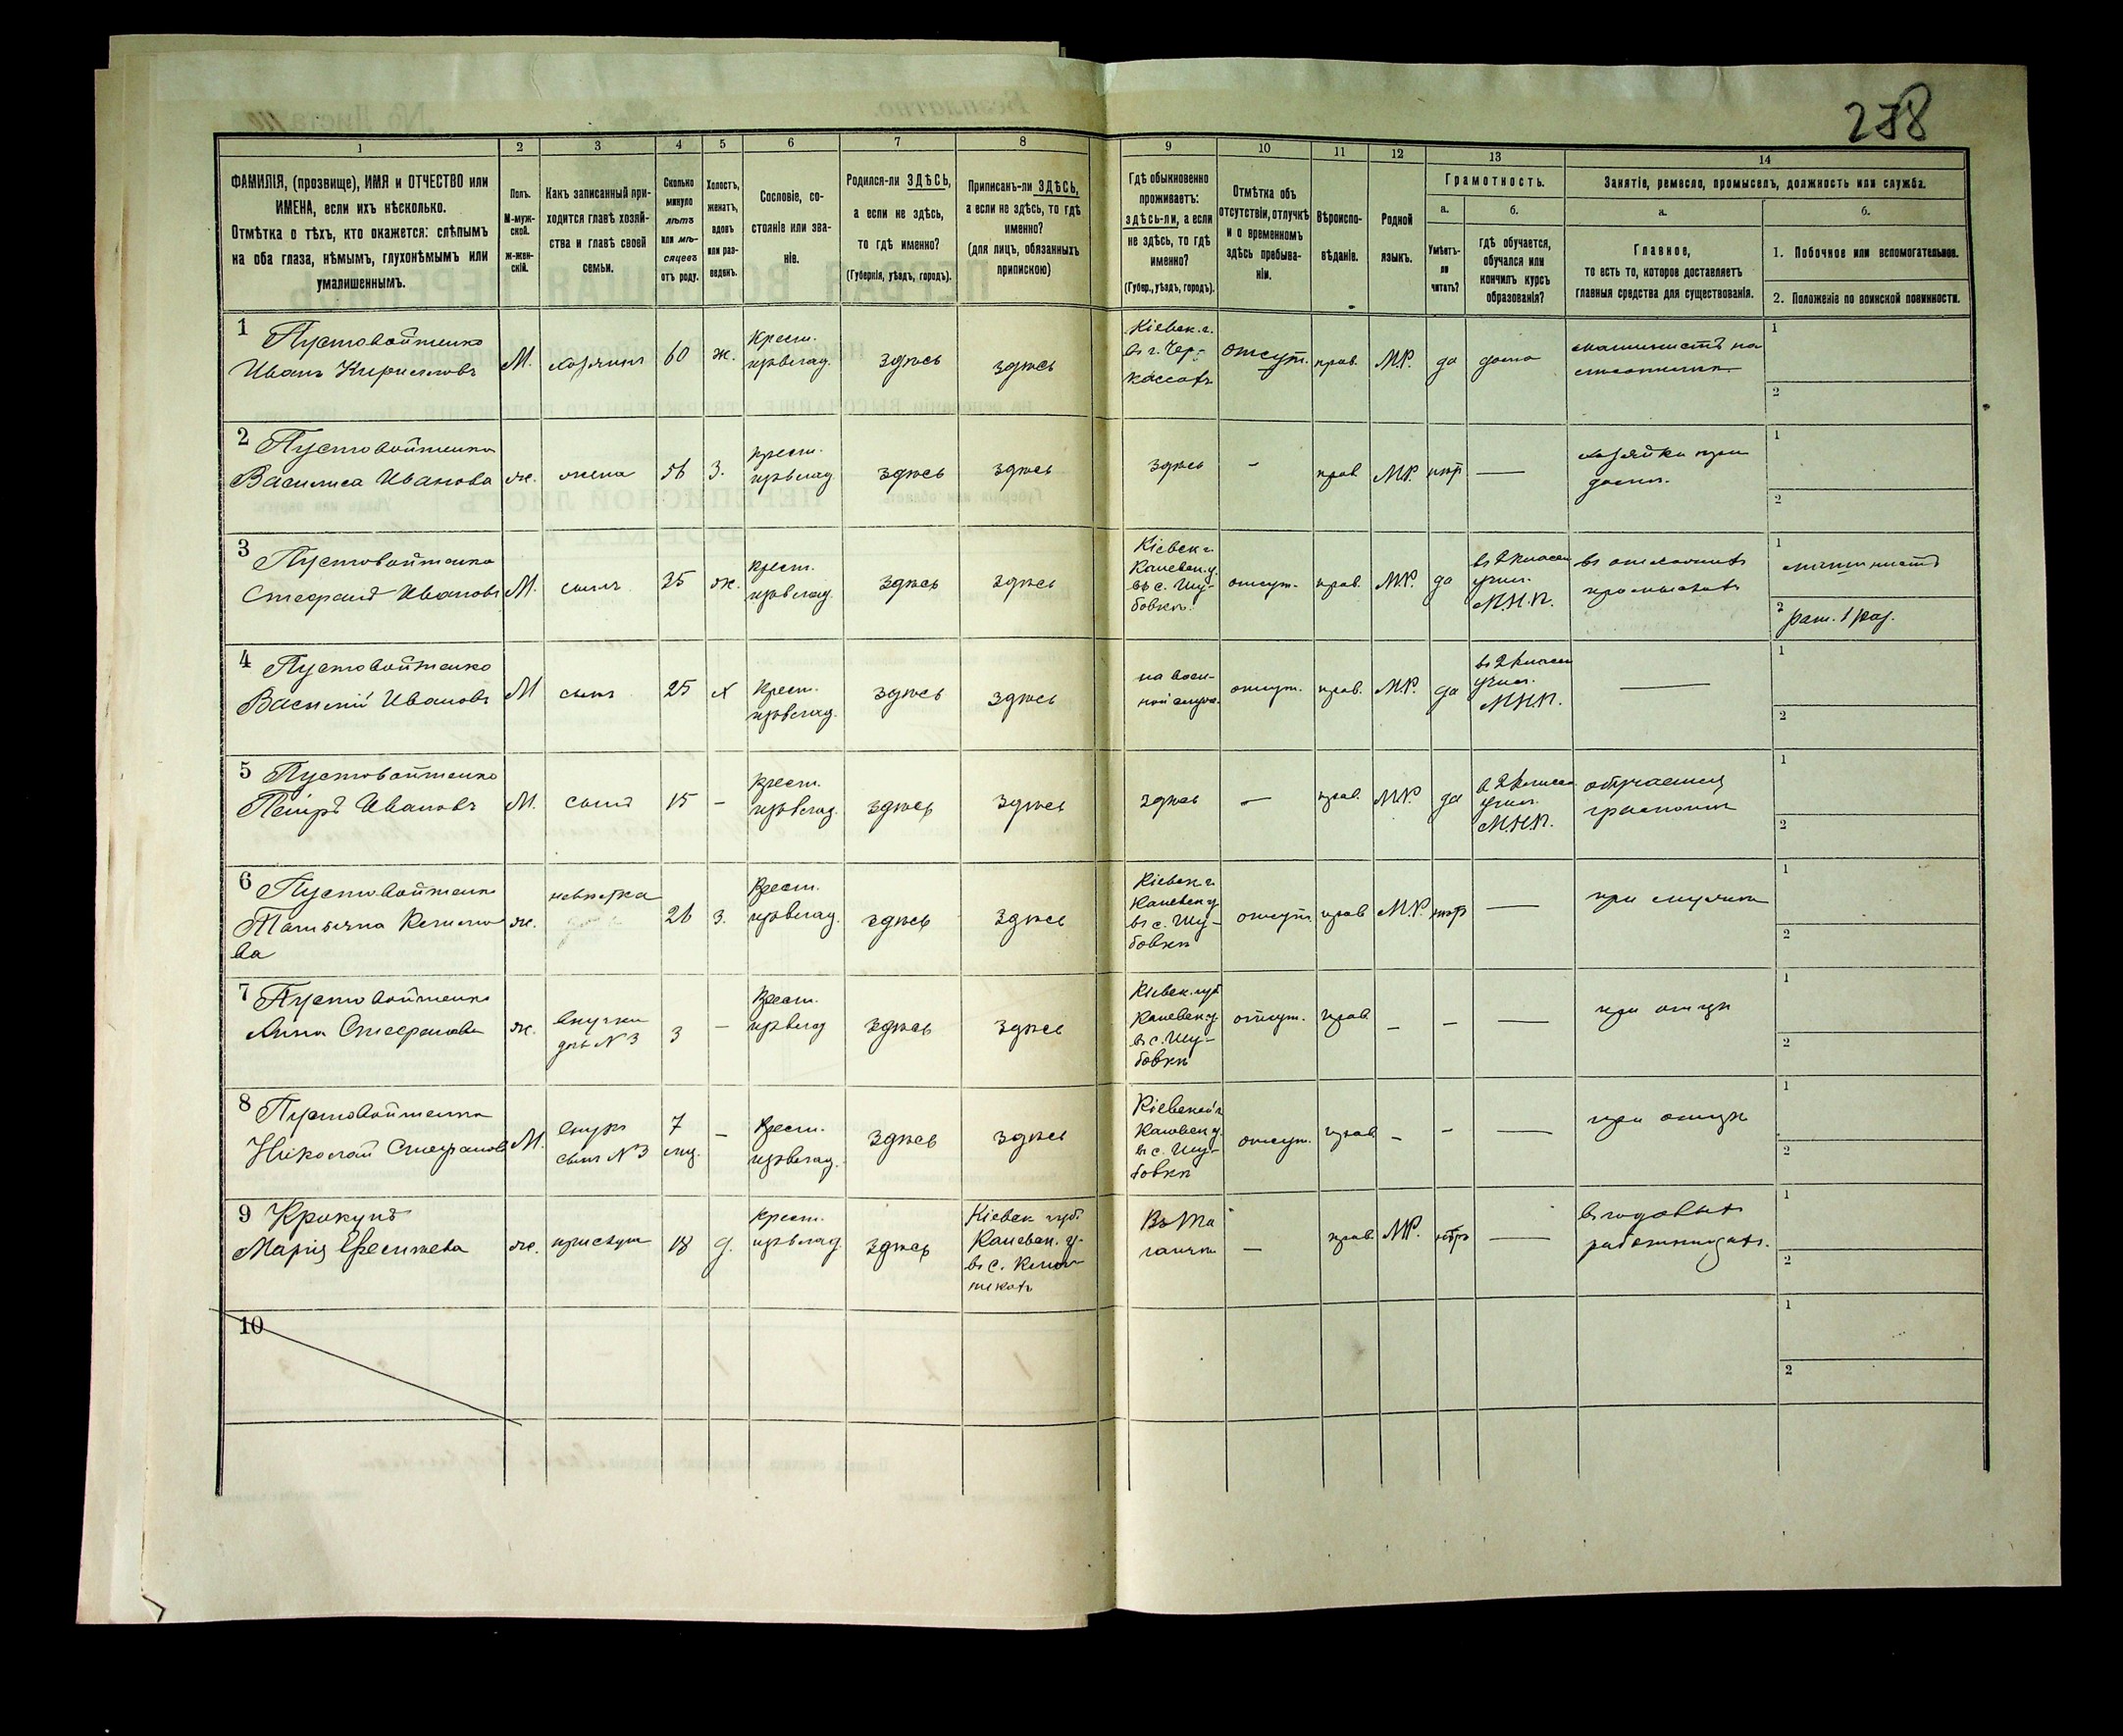 278
1 2 3 4 5 6 7 8 9 10 11 12 13 14
ФАМИЛІЯ, (прозвище), ИМЯ и ОТЧЕСТВО или
ИМЕНА, если ихъ нѣсколько.
Отмѣтка о тѣхъ, кто окажется: слѣпымъ
на оба глаза, нѣмымъ, глухонѣмымъ или
умалишеннымъ.
Полъ.
М-муж-
ской.
Ж-жен-
скій.
Какъ записанный при-
ходится главѣ хозяй-
ства и главѣ своей
семьи.
Сколько
минуло
лѣтъ
или мѣ-
сяцевъ
отъ роду.
Холостъ,
женатъ,
вдовъ
или раз-
веденъ.
Сословіе, со-
стояніе или зва-
ніе.
Родился-ли ЗДѢСЬ,
а если не здѣсь,
то гдѣ именно?
(Губернія, уѣздъ, городъ).
Приписанъ-ли ЗДѢСЬ,
а если не здѣсь, то гдѣ
именно?
(для лицъ, обязанныхъ
припискою)
Гдѣ обыкновенно
проживаетъ:
здѣсь-ли, а если
не здѣсь, то гдѣ
именно?
(Губер., уѣздъ, городъ).
Отмѣтка объ
отсутствіи, отлучкѣ
и о временномъ
здѣсь пребыва-
ніи.
Вѣроиспо-
вѣданіе.
Родной
языкъ.
Грамотность.
а.
Умѣетъ-
ли
читать?
б.
Гдѣ обучается,
обучался или
кончилъ курсъ
образованія?
Занятіе, ремесло, промыселъ, должность или служба.
а.
Главное,
то есть то, которое доставляетъ
главныя средства для существованія.
б.
1. Побочное или вспомогательное.
2. Положеніе по воинской повинности.
1 Пустовойтенко
Иванъ Кирилловъ
М. хозяинъ 60 ж.
Крест.
изъ влад.
здѣсь здѣсь
Кіевск. г.
въ г. Чер-
кассахъ
отсут. прав. М.Р. да дома
машинистъ на
1
2
2 Пустовойтенко
Василиса Иванова
ж. жена 56 З.
крест.
изъ влад.
здѣсь здѣсь
здѣсь - прав М.Р. нѣт —
хозяйка при
домѣ.
1
2
3 Пустовойтенко
Стефанъ Ивановъ
М. сынъ 35 ж.
крест.
изъ влад.
здѣсь здѣсь
Кіевск г.
Каневск. у.
въ с. Шу-
бовкѣ.
отсут. прав. М.Р. да
въ 2 класн
учил.
М.Н.П.
въ
1 машинистъ
2 рат. 1 раз.
4 Пустовойтенко
Василій Ивановъ
М сынъ 25 х
Крест.
изъ влад.
здѣсь здѣсь
на воен-
ной служ.
отсут. прав. М.Р. да
въ 2 класн
учил.
М.Н.П.
—
1
2
5 Пустовойтенко
Петръ Ивановъ
М. сынъ 15 -
Крест.
изъ влад.
здѣсь здѣсь
здѣсь — прав. М.Р. да
в 2 класн
учил.
М.Н.П.
обучается
грамотѣ
1
2
6 Пустовойтенко
Татьяна Климо
ва
ж. невѣстка 26 З.
Крест.
изъ влад.
здѣсь здѣсь
Кіевск г.
Каневск у
въ с. Шу-
бовкѣ
отсут. прав М.Р. нѣт —
при мужѣ
1
2
7 Пустовойтенко
Анна Стефанова
ж.
внучка
дочь № 3
3 -
Крест.
изъ влад
здѣсь здѣсь
Кіевск. губ
Каневск. у.
въ с. Шу-
бовкѣ
отсут. прав - - —
при отцѣ
1
2
8 Пустовойтенко
Николай Стефановъ
М.
внукъ
сынъ № 3
7
мц.
-
Крест.
изъ влад.
здѣсь здѣсь
Кіевской г.
Каневск у.
въ с. Шу-
бовкѣ
отсут. прав - - —
при отцѣ
1
2
9 Крокунъ
Марія Ефимева
ж. прислуга 18 д.
крест.
изъ влад.
здѣсь
Кіевск губ.
Каневск. у.
въ с.
Въ Та
ганчѣ
— прав. М.Р. нѣтъ —
въ годовыхъ
работницахъ.
1
2
10
1
2